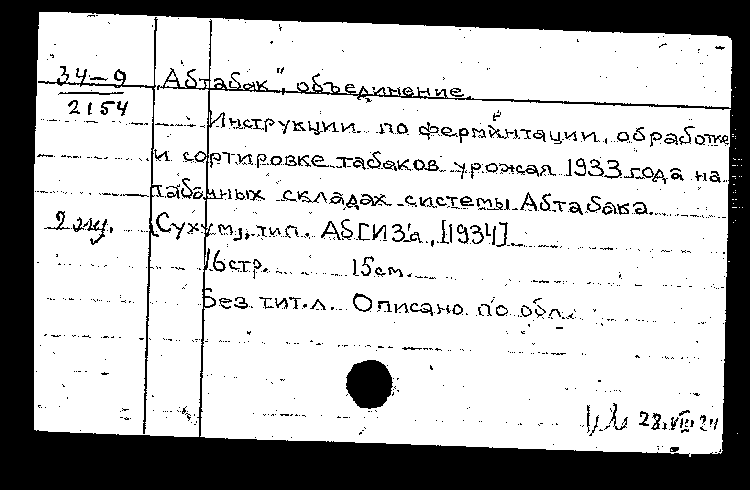 34-9
2154
„Абтабак", объединение.
Инструкции по ферментации, обработке
и сортировке табаков урожая 1933 года на
табачных складах системы Абтабака.
2 эку.
[Сухум], тип. АБГИЗ'а, [1934]
16стр. 15см.
Без тит.л. Описано по обл.
28.VIII